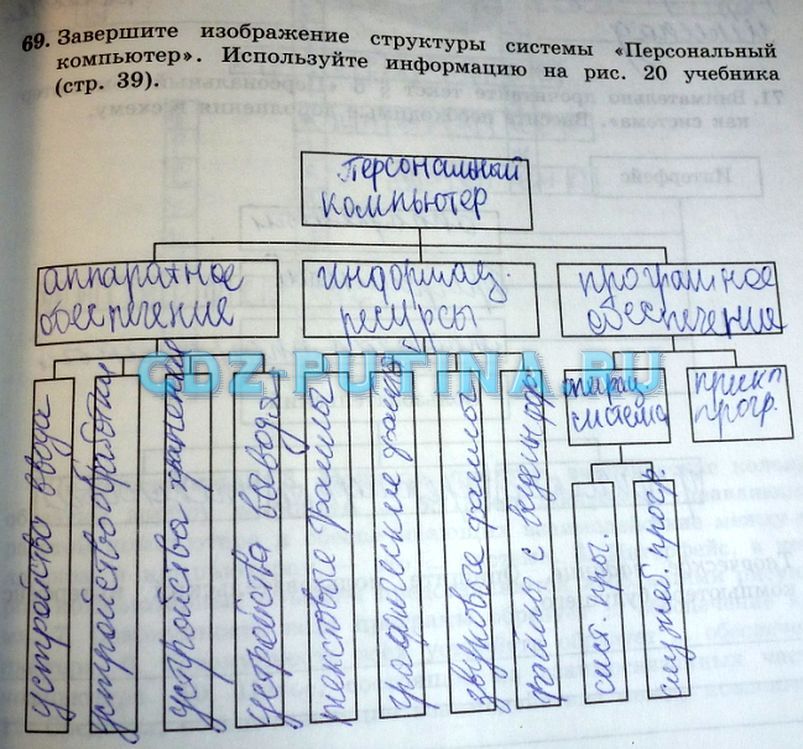 69. Завершите изображение структуры системы «Персональный
компьютер». Используйте информацию на рис. 20 учебника
(стр. 39).
персональный
компьютер
аппаратное
обеспечение
информац.
ресурсы
програмное
обеспечения
GDZ-PUTINA.RU
устройства ввода
устройство обработки
устройства хранения
устройства вывода
текстовые файлы
графические файлы
звуковые файлы
файлы с видеоинф.
операц.
система
прикл
прогр.
сист. прг.
служеб. прогр.